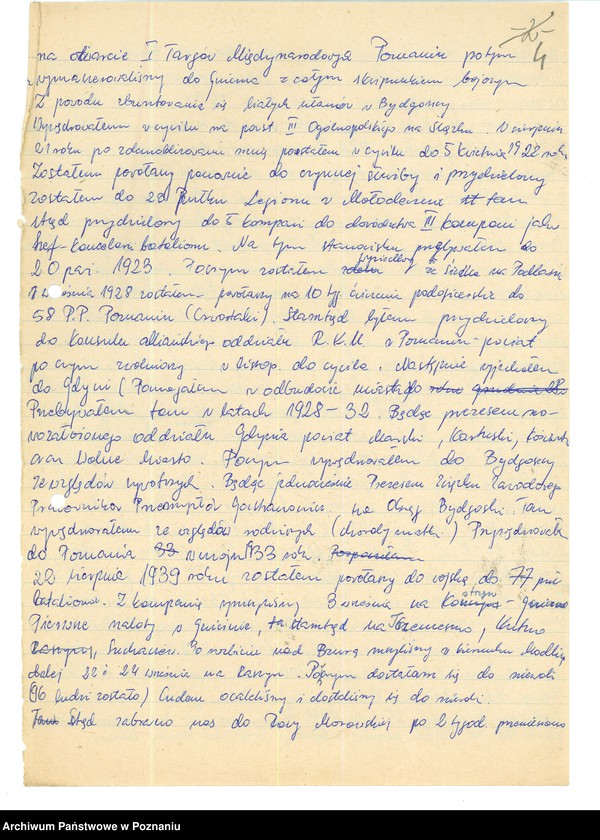 4
na otwarcie I Targów Międzynarodowych Poznania potym
wymaszerowaliśmy do Gniezna z całym bojowym
Z powodu zbuntowania się białych ułanów w Bydgoszczy
w cywilu na powst. III Ogólnopolskiego na Śląsku. W sierpniu
21 roku po zdemobilizowaniu w cywilu do 5 kwietnia 1922 roku
Zostałem powołany ponownie do czynnej służby i przydzielony
zostałem do Pułku Legionu w Mołodecznie tam
stąd przydzielony do kompani do dowództwa III kompani jako
szef-kancelarii batalionu. Na tym stanowisku przebywałem do
20 paź. 1923. Poczym zostałem zwolniony ze Siedlec na Podlasiu
1928 zostałem powołany na 10 tyg. ćwiczenia podoficerskie do
58 P.P. Poznaniu (Czwartaki). Stamtąd byłem przydzielony
do oddziału R.K.U. Poznań-powiat
po czym zwolniony w listop. do cywila. Następnie wyjechałem
do Gdyni (Pomagałem w odbudowie miasta
Przebywałem tam w latach 1928-32. Będąc prezesem no-
wozałożonego oddziału Gdynia powiat Morski, Kartuski,
oraz Wolne Miasto. Poczym wywędrowałem do Bydgoszczy
ze względów wywrotnych. Będąc jednocześnie Prezesem Związku Zawodowego
Pracowników Przemysłów Gastronomicz. na Okręg Bydgoski. Tam
wywędrowałem ze względów rodzinnych (choroby matki) Przywędrowałem
do Poznania w maju 933 roku.
22 sierpnia 1939 roku zostałem powołany do wojska do 77 pie
batalionu. Z kompanią wyruszyliśmy 3 września na - Gniezno
Pierwsze naloty w Gnieźnie, stamtąd na Trzemeszno, Kutno
Sochaczew. Po rozbiciu nad Bzurą ruszyliśmy w kierunku Modlina
dalej 22 i 24 września na Kaszyn. Potym dostałam się do niewoli
(96 ludzi zostało) Cudem ocaleliśmy i dostaliśmy się do niewoli.
Stąd zabrano nas do Rawy Mazowskiej po 2 tygod. przeniesiono
Archiwum Państwowe w Poznaniu